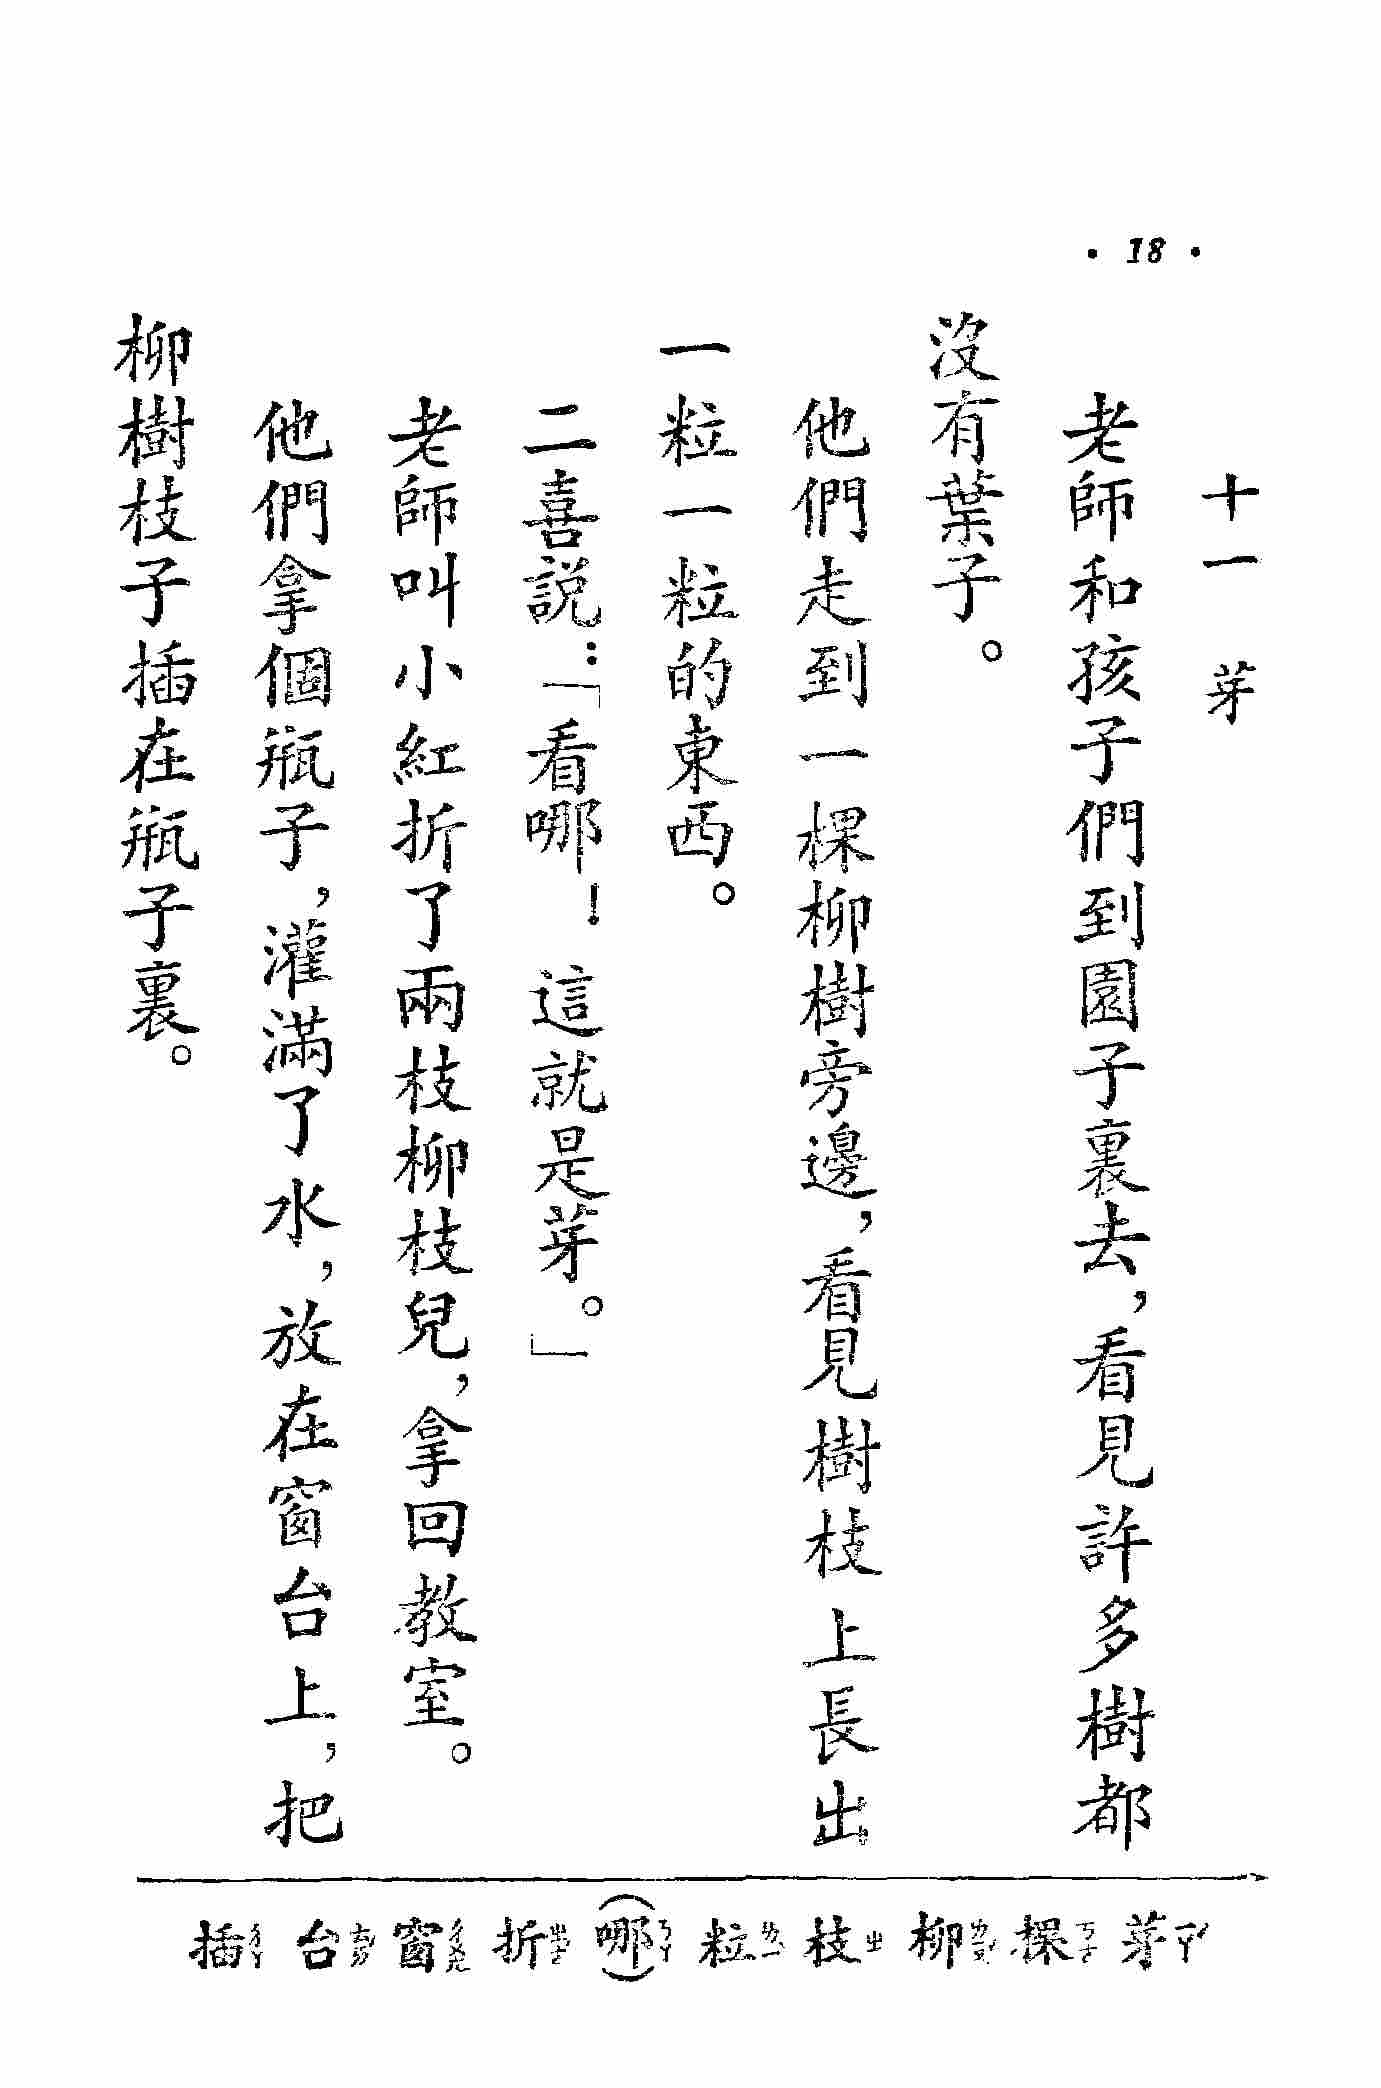 · 18 ·
十一 芽
老師和孩子們到園子裏去，看見許多樹都
沒有葉子。
他們走到一棵柳樹旁邊，看見樹枝上長出
一粒一粒的東西。
二喜説：「看哪！這就是芽。」
老師叫小紅折了兩枝柳枝兒，拿回教室。
他們拿個瓶子，灌滿了水，放在窗台上，把
柳樹枝子插在瓶子裏。
芽 棵 柳 枝 粒 (哪) 折 窗 台 插